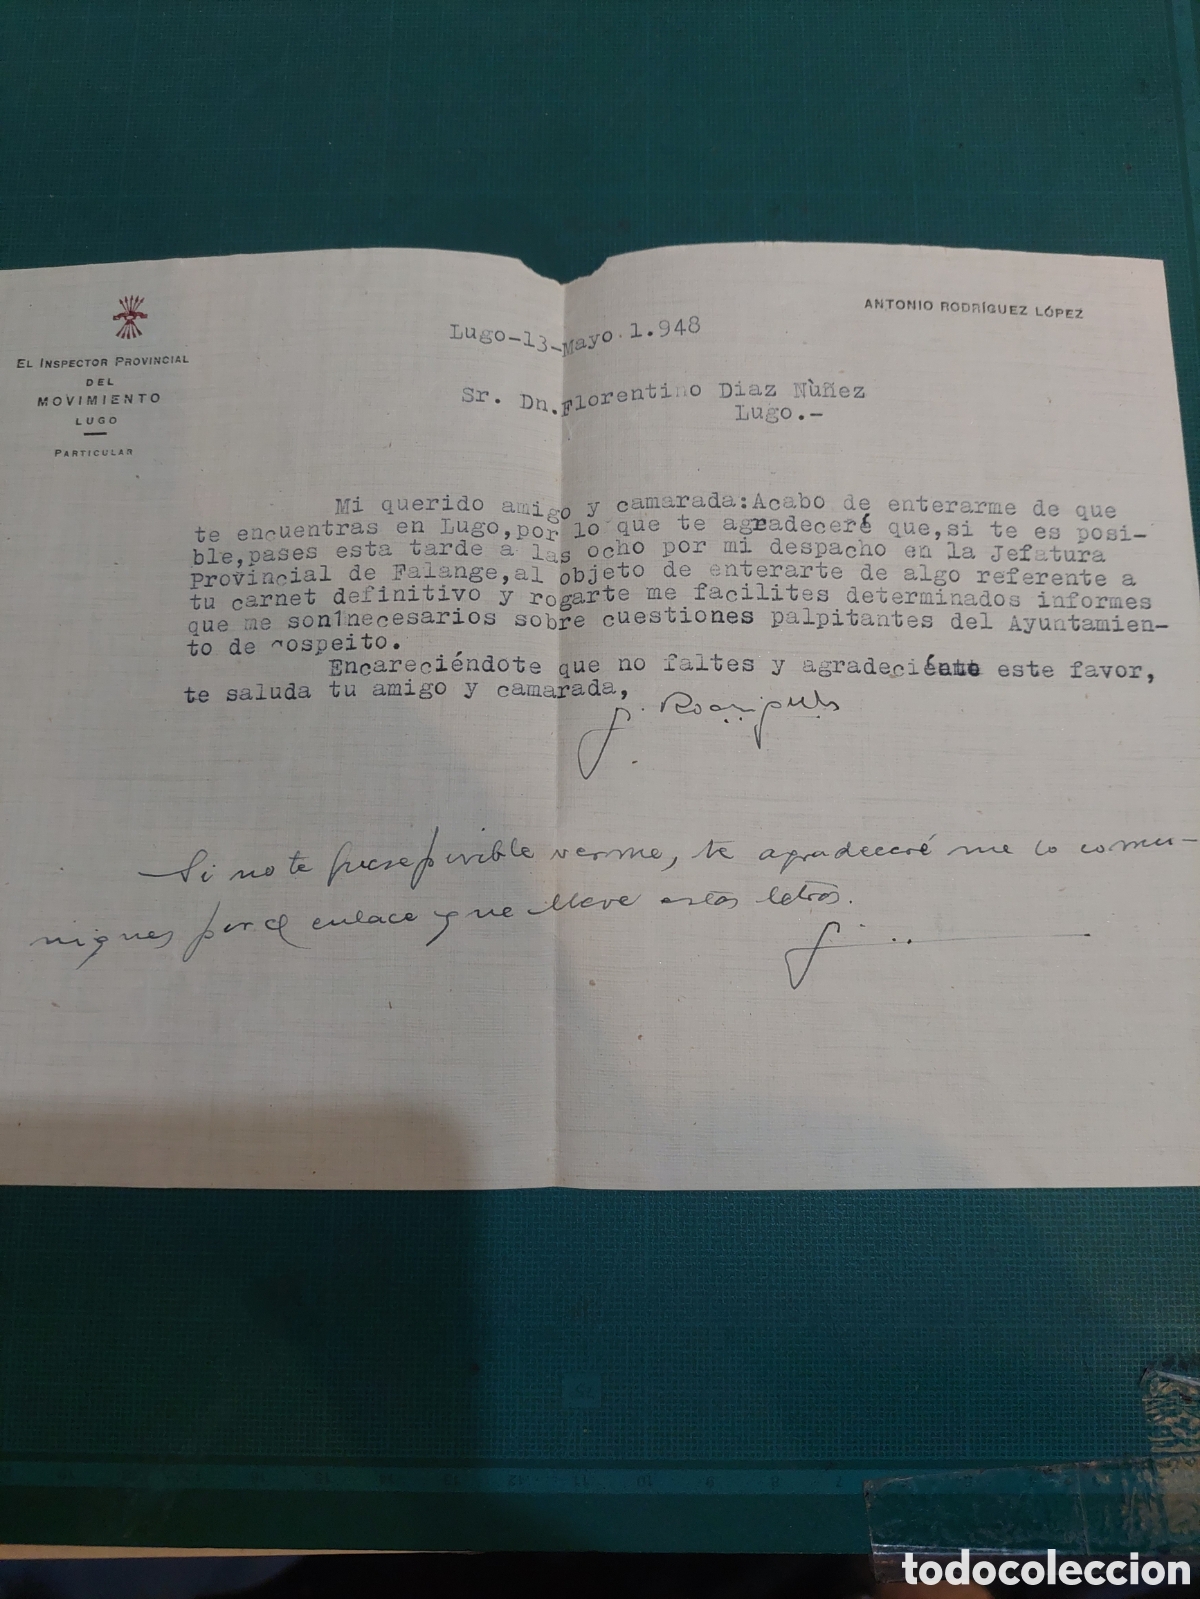 EL INSPECTOR PROVINCIAL
DEL
MOVIMIENTO
LUGO
PARTICULAR
ANTONIO RODRÍGUEZ LÓPEZ
Lugo-13-Mayo.1.948
Sr. Dn.Florentino Diaz Nùñez
Lugo.-
Mi querido amigo y camarada:Acabo de enterarme de que
te encuentras en Lugo,por lo que te agradeceré que,si te es posi-
ble,pases esta tarde a las ocho por mi despacho en la Jefatura
Provincial de Falange,al objeto de enterarte de algo referente a
tu carnet definitivo y rogarte me facilites determinados informes
que me son1necesarios sobre cuestiones palpitantes del Ayuntamien-
to de Cospeito.
Encareciéndote que no faltes y agradeci este favor,
te saluda tu amigo y camarada,
Si no te fuese posible verme, te agradeceré me lo comu-
niques por el enlace que lleve estas letras.
todocoleccion